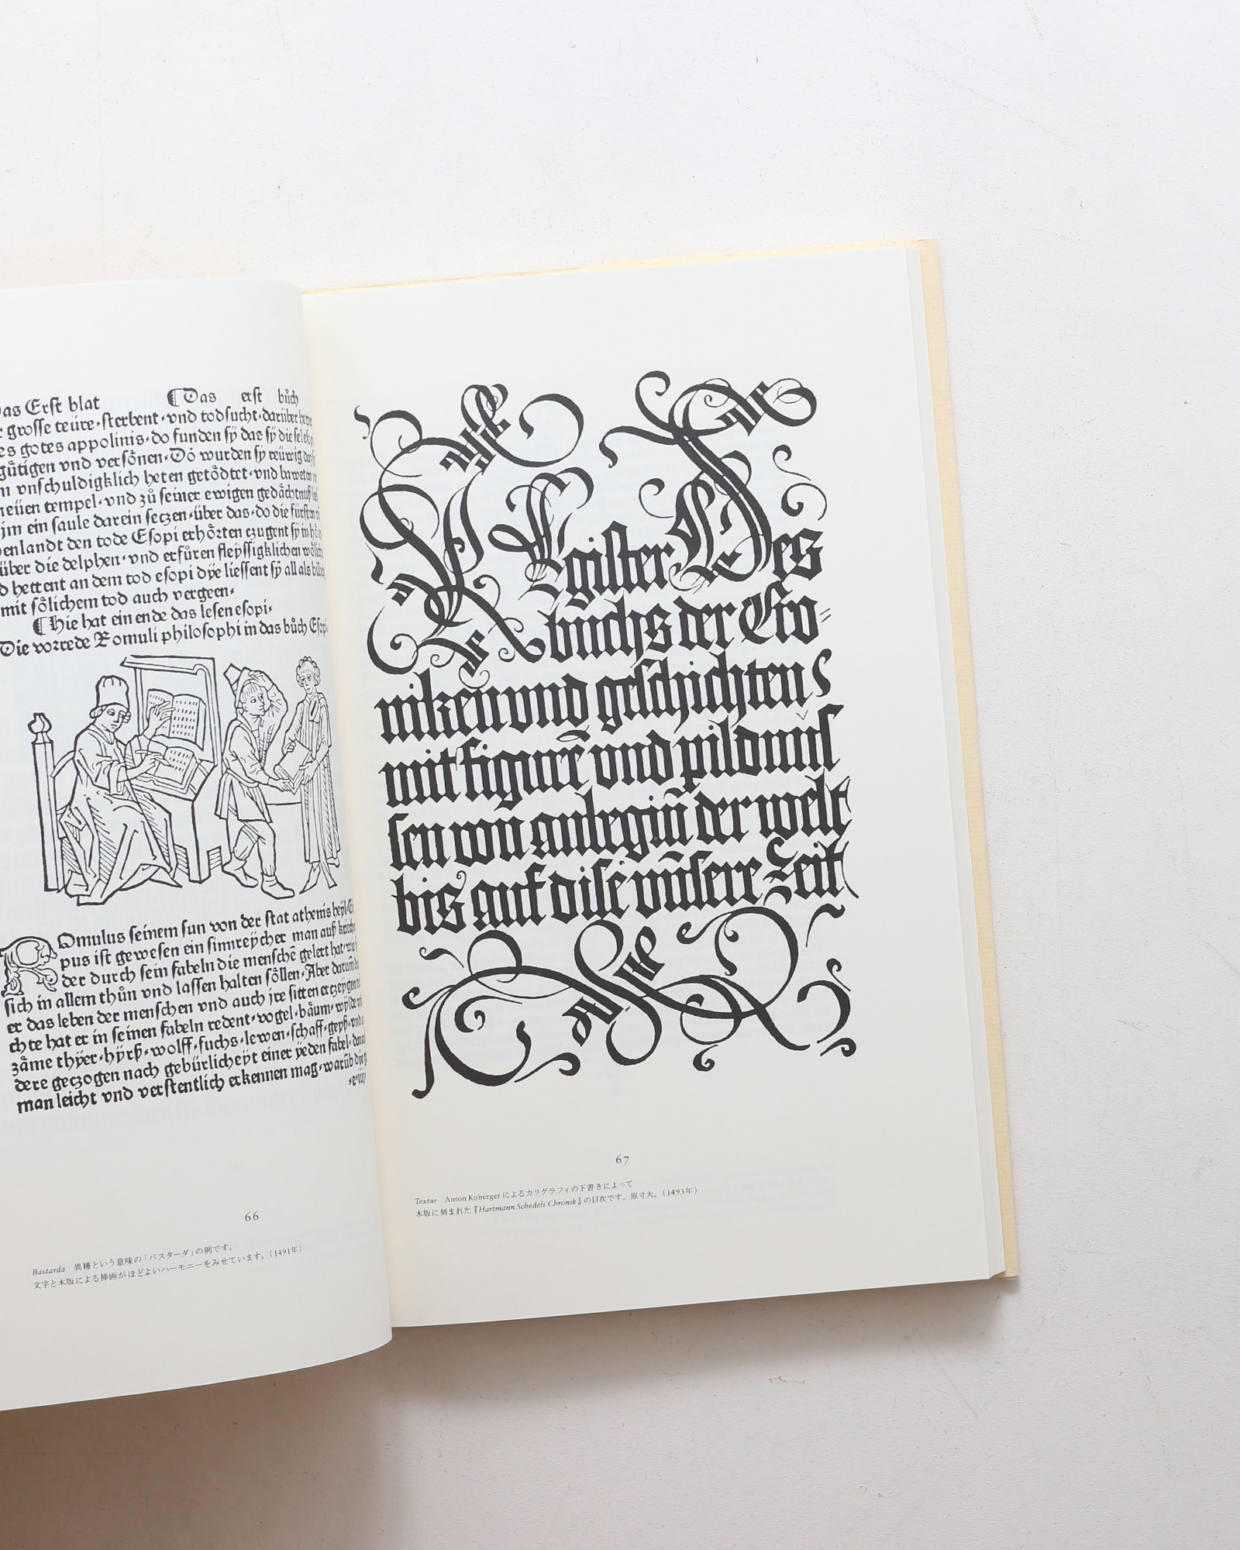 as Erst blat ¶Das erst bůch
grosse teüre·sterbent·vnd todsucht·darüber
es gotes appolinis·do funden sÿ das sÿ die
gůtigen vnd versönen·Do wurden sÿ
vnschuldigklich heten getödtet·vnd
neüen tempel·vnd zů seiner ewigen gedächtnuß
jm ein saule darein seczen·über das·do die fürsten
enlandt den tode Esopi erhörten czugent sÿ in
über die delphen·vnd erfůren fleÿssigklichen
hettent an dem tod esopi dÿe liessent sÿ all als
mit sőlichem tod auch vergeen·
¶Hie hat ein ende das lesen esopi·
Die vorrede Romuli philosophi in das bůch
Romulus seinem sun von der stat athenis heÿl·
pus ist gewesen ein sinnreÿcher man auß
der durch sein fabeln die menschē gelert hat·
sich in allem thůn vnd lassen halten söllen·Aber darumb
er das leben der menschen vnd auch jre sitten
chte hat er in seinen fabeln redent·vogel·bäum·
zäme thÿer·hÿrß·wolff·fuchs·lewen·schaff·geÿß·
dere geczogen nach gebürlicheÿt einer yeden fabel·
man leicht vnd verstentlich erkennen mag·warüb
66
Bastarda 異種という意味の「バスターダ」の例です。
文字と木版による挿画がほどよいハーモニーをみせています。(1491年)
REgister Des
buchs der Cro-
niken vnd geschichten
mit figurē vnd pildnus
sen von anbegiñ der welt
bis auf dise vñsere Zeit
67
Textur Anton Koberger によるカリグラフィの下書きによって
木版に刻まれた『Hartmann Schedels Chronik』の目次です。原寸大。(1493年)